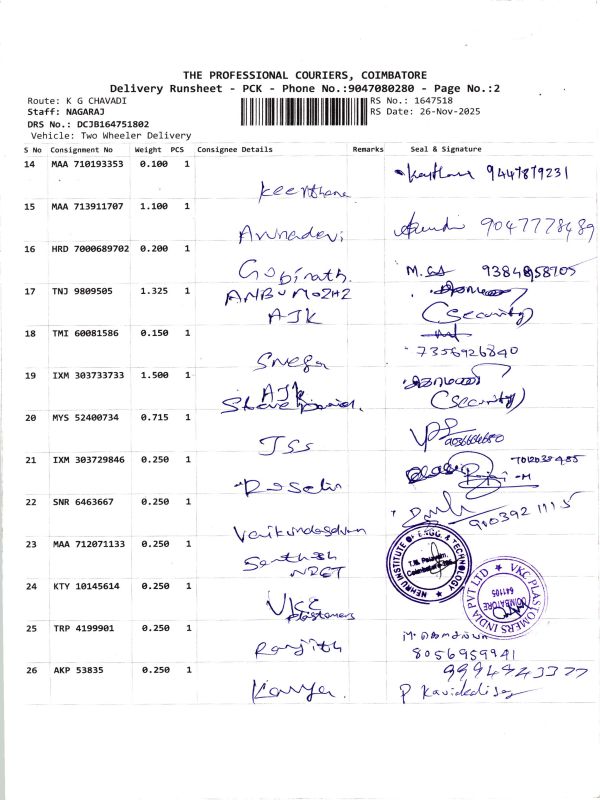 THE PROFESSIONAL COURIERS, COIMBATORE
Delivery Runsheet - PCK - Phone No.:9047080280 - Page No.:2
Route: K G CHAVADI RS No.: 1647518
Staff: NAGARAJ RS Date: 26-Nov-2025
DRS No.: DCJB164751802
Vehicle: Two Wheeler Delivery
S No Consignment No Weight PCS Consignee Details Remarks Seal & Signature
14 MAA 710193353 0.100 1
Keerthana 9447879231
15 MAA 713911707 1.100 1
Annadevi 9047778489
16 HRD 7000689702 0.200 1
Gopinath
17 TNJ 9809505 1.325 1
AJK (Security)
18 TMI 60081586 0.150 1
Snega 7356926840
19 IXM 303733733 1.500 1
AJK (Security)
20 MYS 52400734 0.715 1
JSS
21 IXM 303729846 0.250 1
Roselin
22 SNR 6463667 0.250 1
23 MAA 712071133 0.250 1
Santhosh
NEHRU INSTITUTE OF ENGG. & TECHNOLOGY
24 KTY 10145614 0.250 1
VKC
VKC PLASTOMERS INDIA PVT LTD
COIMBATORE
641105
25 TRP 4199901 0.250 1
Ranjith
8056959941
26 AKP 53835 0.250 1
Kavya 9994943377